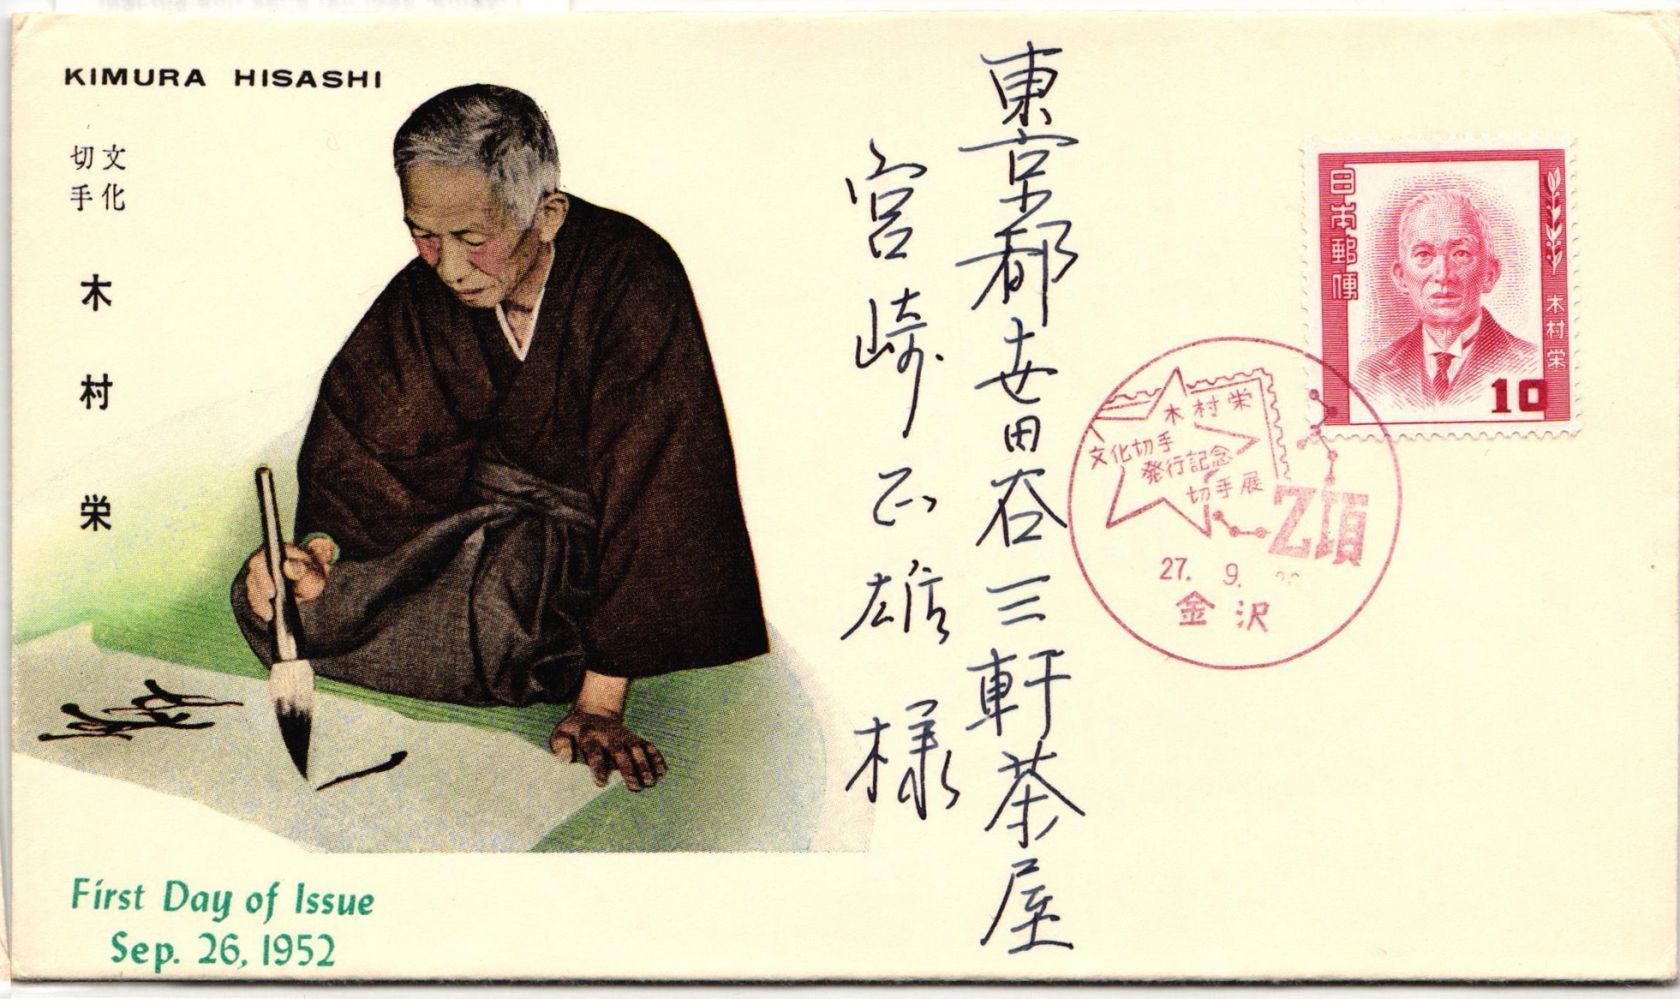 KIMURA HISASHI
文化
切手
木村栄
First Day of Issue
Sep. 26, 1952
東京都世田谷三軒茶屋
宮崎正雄様
日本郵便
木村栄
10
木村栄
文化切手
発行記念
切手展
Z項
27. 9.
金沢